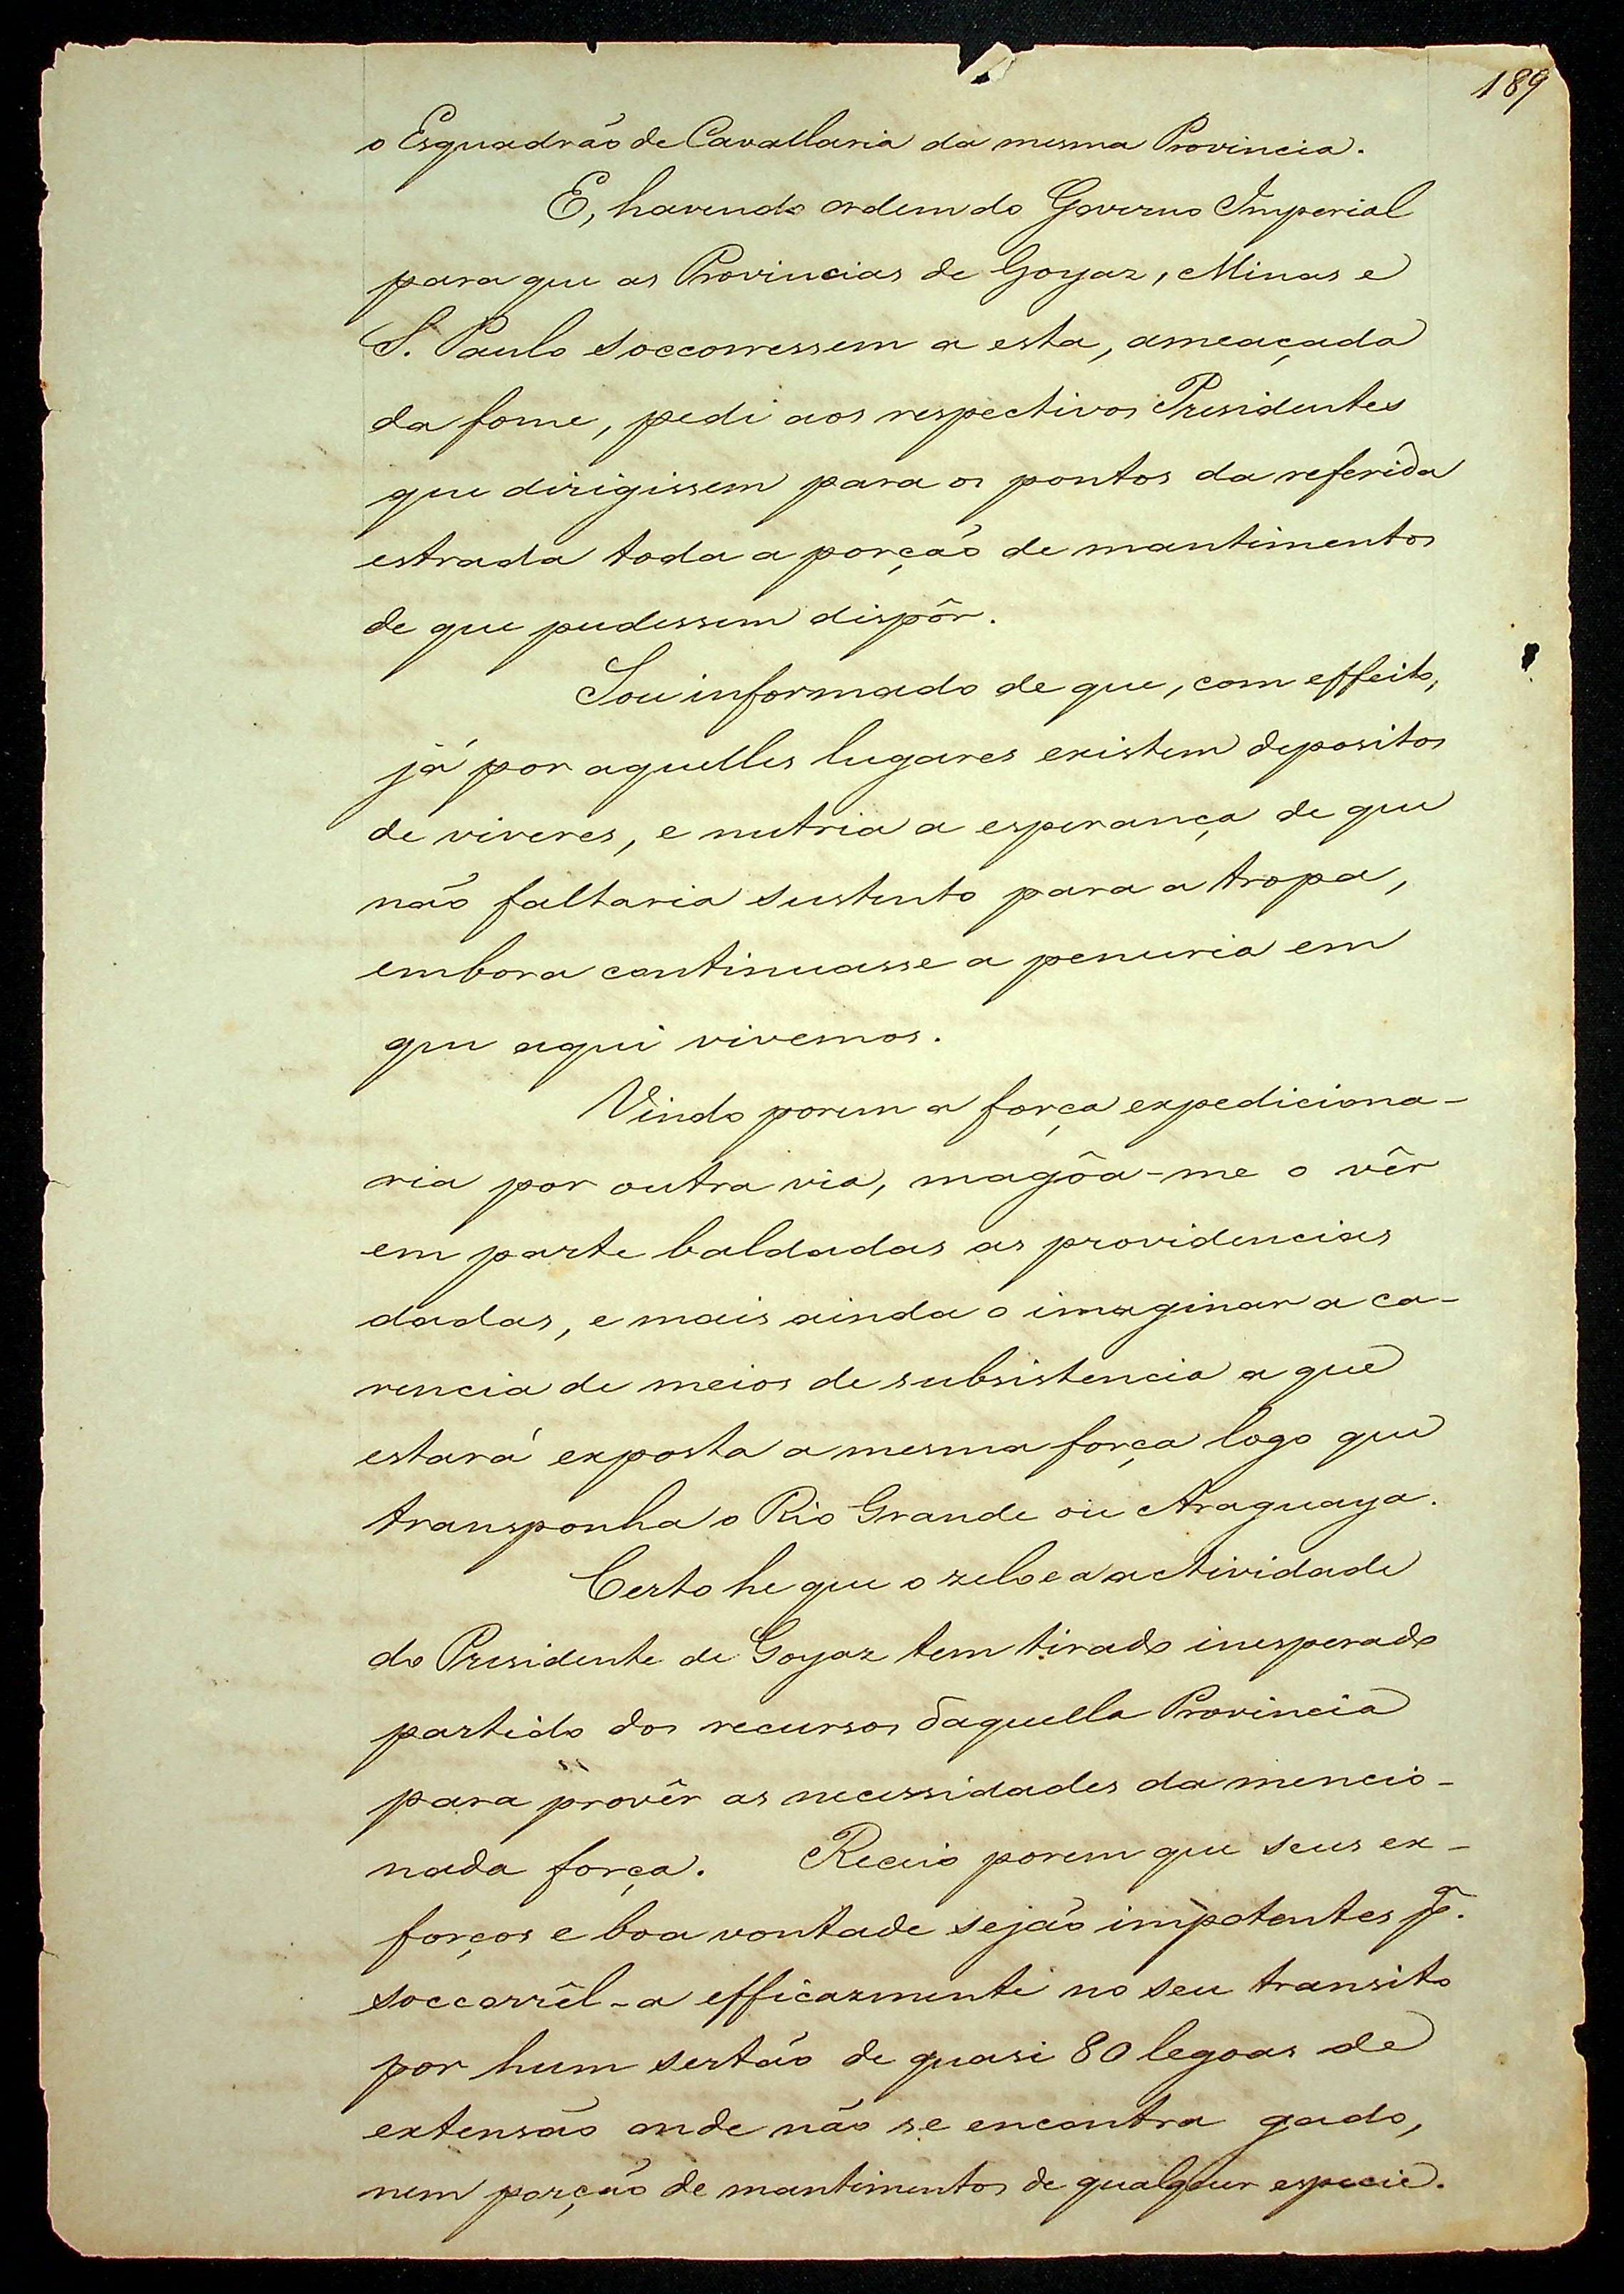 189
o Esquadrão de Cavallaria da mesma Provincia.
E, havendo ordem do Governo Imperial
para que as Provincias de Goyaz, Minas e
S. Paulo soccorressem a esta, ameaçada
da fome, pedi aos respectivos Presidentes
que dirigissem para os pontos da referida
estrada toda a porção de mantimentos
de que pudessem dispôr.
Sou informado de que, com effeito,
já por aquelles lugares existem depositos
de viveres, e nutria a esperança de que
não faltaria sustento para a tropa,
embora continuasse a penuria em
que aqui vivemos.
Vindo porem a força expediciona-
ria por outra via, magôa-me o vêr
em parte baldadas as providencias
dadas, e mais ainda o imaginar a ca-
rencia de meios de subsistencia a que
estará exposta a mesma força logo que
transponha o Rio Grande ou Araguaya.
Certo he que o zelo e a actividade
do Presidente de Goyaz tem tirado inesperado
partido dos recursos daquella Provincia
para provêr as necessidades da mencio-
nada força. Receio porem que seus ex-
forços e boa vontade sejão impotentes pª.
soccorrêl-a efficazmente no seu transito
por hum sertão de quasi 80 legoas de
extensão onde não se encontra gado,
nem porção de mantimentos de qualquer especie.